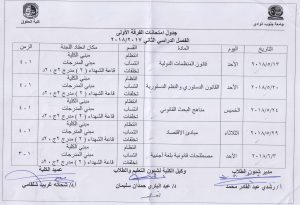 جامعة جنوب الوادي
كلية الحقوق
جدول امتحانات الفرقة الأولى
الفصل الدراسي الثاني ٢٠١٧/٢٠١٨
التاريخ اليوم المادة القسم مكان انعقاد اللجنة الزمن
٢٠١٨/٥/١٣ الأحد قانون المنظمات الدولية انتظام مبنى الكلية ١-٤
انتساب مبنى المدرجات
قاعة الشهداء
٢٠١٨/٥/٢٠ الأحد القانون الدستوري والنظم الدستورية انتظام مبنى الكلية ١-٤
انتساب مبنى المدرجات
قاعة الشهداء
٢٠١٨/٥/٢٤ الخميس مناهج البحث القانوني انتظام مبنى الكلية ١-٤
انتساب مبنى المدرجات
قاعة الشهداء
٢٠١٨/٥/٢٩ الثلاثاء مبادئ الاقتصاد انتظام مبنى الكلية ١-٤
انتساب مبنى المدرجات
قاعة الشهداء
٢٠١٨/٦/٣ الأحد مصطلحات قانونية بلغة أجنبية انتظام مبنى الكلية ١-٣
انتساب مبنى المدرجات
قاعة الشهداء
مدير شئون الطلاب وكيل الكلية لشئون التعليم والطلاب عميد الكلية
أ/ رشدي عبد القادر محمد د/ عبد الباري حمدان سليمان